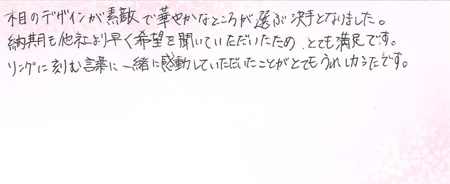 木目のデザインが素敵で華やかなところが選ぶ決手となりました。
納期も他社より早く希望を聞いていただいたため、とても満足です。
リングに刻む言葉に一緒に感動していただいたことがとてもうれしかったです。